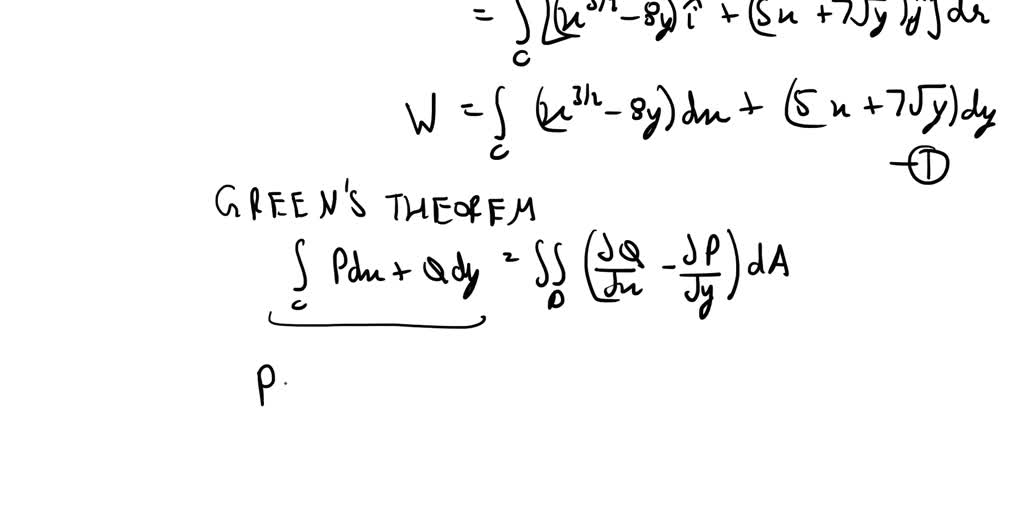 = ∫_C [(x^{3/2} - 8y) î + (5x + 7√y) ĵ] dr
W = ∫_C (x^{3/2} - 8y) dx + (5x + 7√y) dy
— ①
GREEN'S THEOREM
∫_C Pdx + Qdy = ∬_D (∂Q/∂x - ∂P/∂y) dA
P